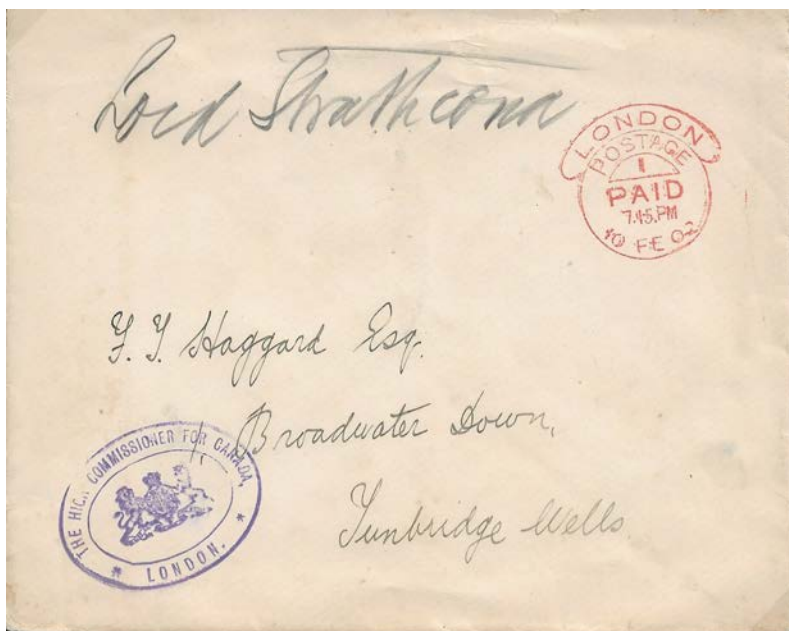 Lord Strathcona
LONDON
POSTAGE
1
PAID
7.45.PM
10 FE 02
F. T. Haggard Esq.
1, Broadwater Down,
Tunbridge Wells.
THE HIGH COMMISSIONER FOR CANADA,
* LONDON. *